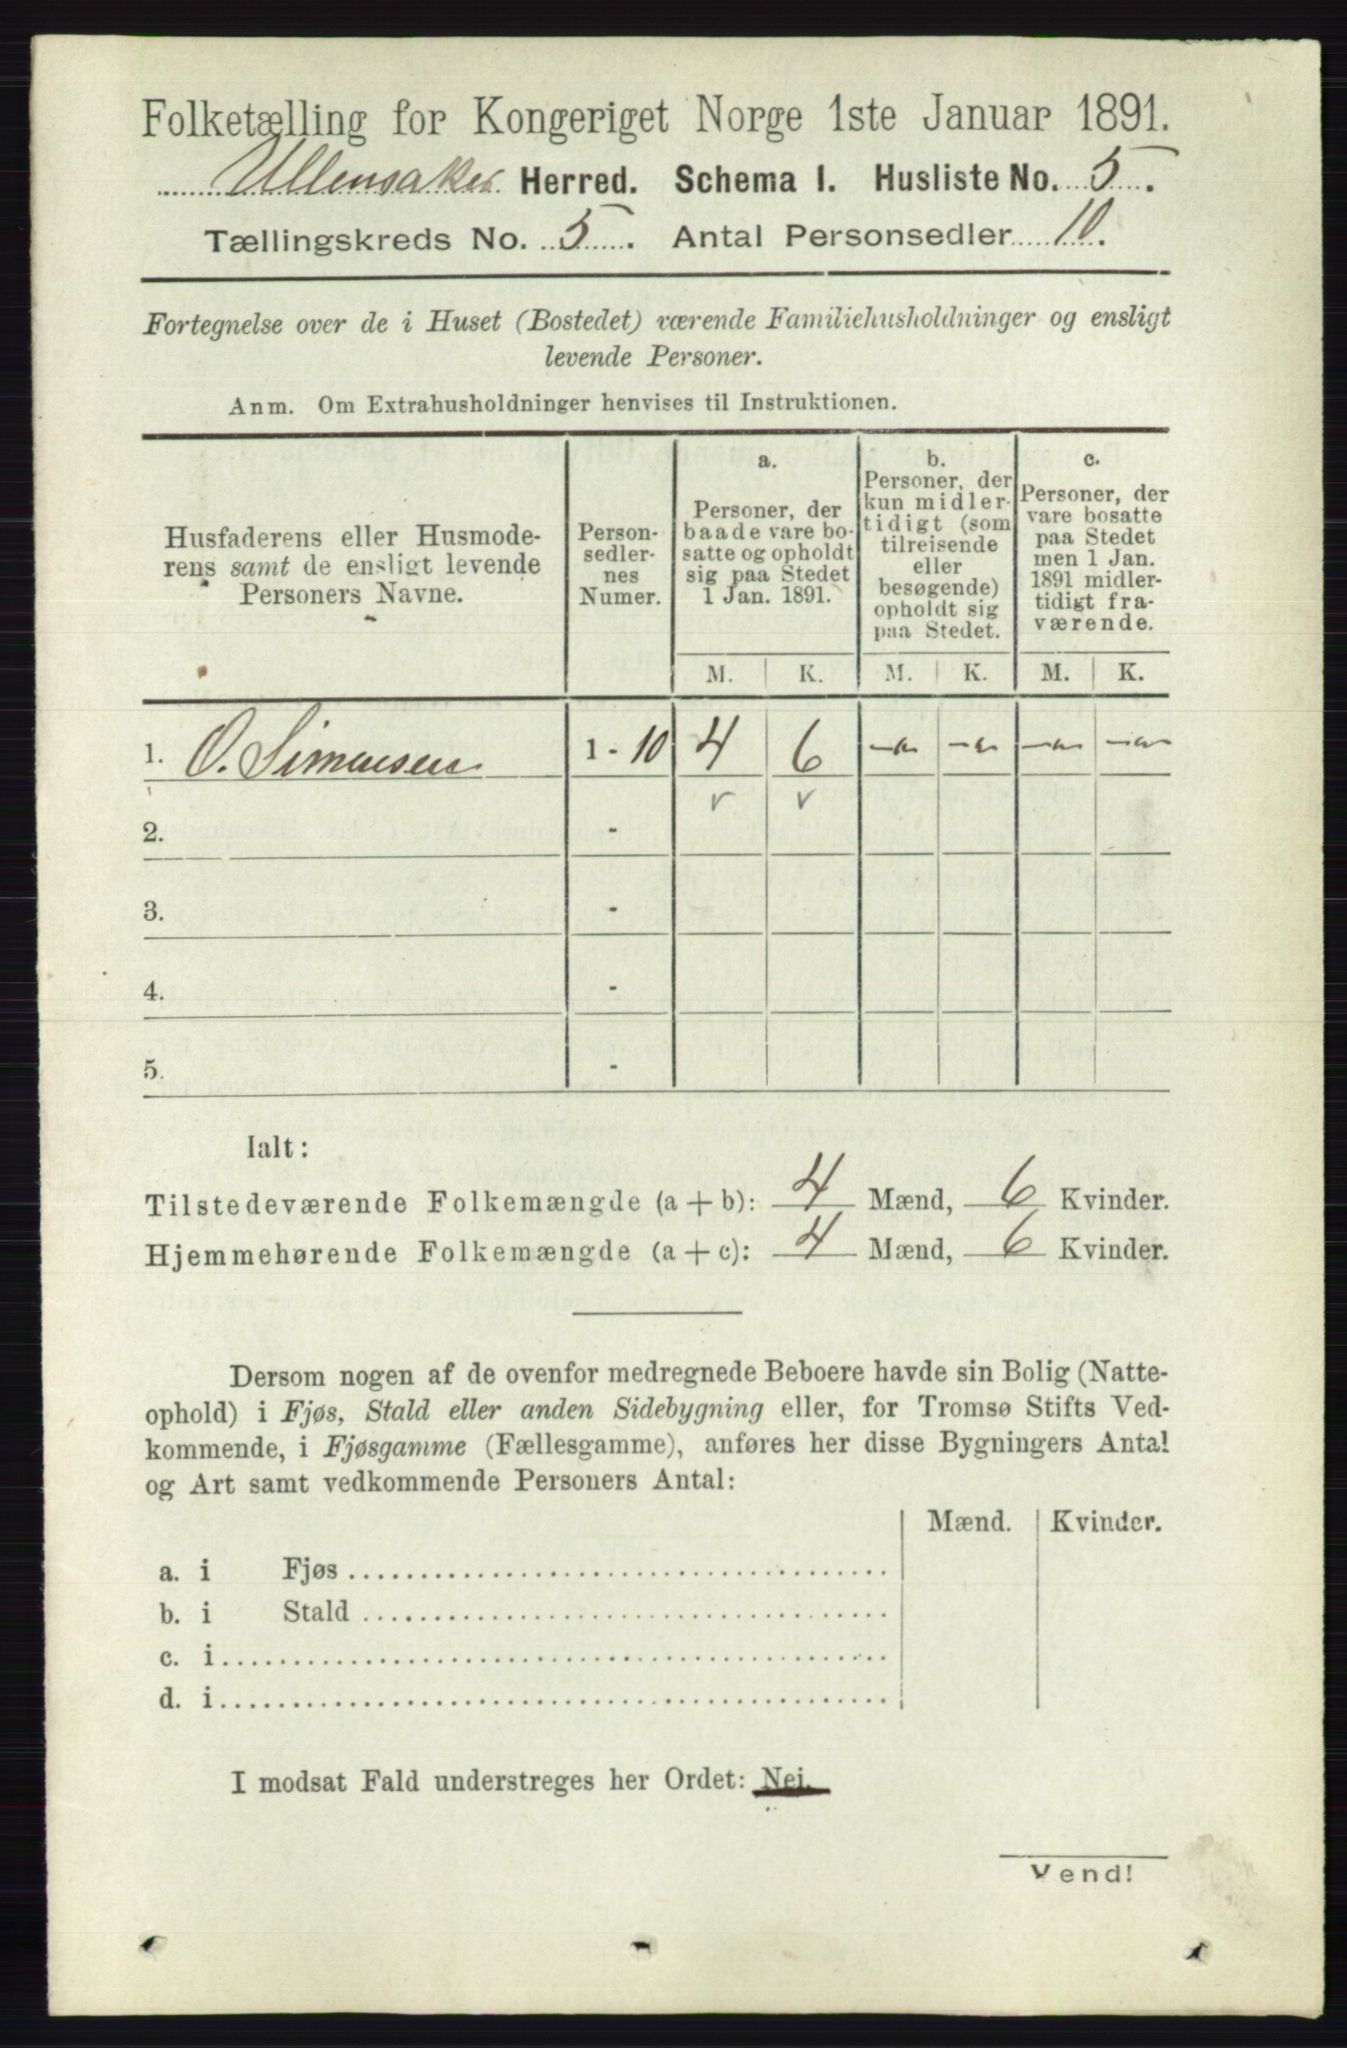 Folketælling for Kongeriget Norge 1ste Januar 1891.
Ullensaker Herred. Schema I. Husliste No. 5.
Tællingskreds No. 5. Antal Personsedler 10.
Fortegnelse over de i Huset (Bostedet) værende Familiehusholdninger og ensligt
levende Personer.
Anm. Om Extrahusholdninger henvises til Instruktionen.
Husfaderens eller Husmode-
rens samt de ensligt levende
Personers Navne.
Person-
sedler-
nes
Numer.
a.
Personer, der
baade vare bo-
satte og opholdt
sig paa Stedet
1 Jan. 1891.
b.
Personer, der
kun midler-
tidigt (som
tilreisende
eller
besøgende)
opholdt sig
paa Stedet.
c.
Personer, der
vare bosatte
paa Stedet
men 1 Jan.
1891 midler-
tidigt fra-
værende.
M. K. M. K. M. K.
1. O. Simensen 1 - 10 4 6
v v
2. -
3. -
4. -
5. -
Ialt:
Tilstedeværende Folkemængde (a + b): 4 Mænd, 6 Kvinder.
Hjemmehørende Folkemængde (a + c): 4 Mænd, 6 Kvinder.
Dersom nogen af de ovenfor medregnede Beboere havde sin Bolig (Natte-
ophold) i Fjøs, Stald eller anden Sidebygning eller, for Tromsø Stifts Ved-
kommende, i Fjøsgamme (Fællesgamme), anføres her disse Bygningers Antal
og Art samt vedkommende Personers Antal:
Mænd. Kvinder.
a. i Fjøs
b. i Stald
c. i
d. i
I modsat Fald understreges her Ordet: Nei.
Vend!